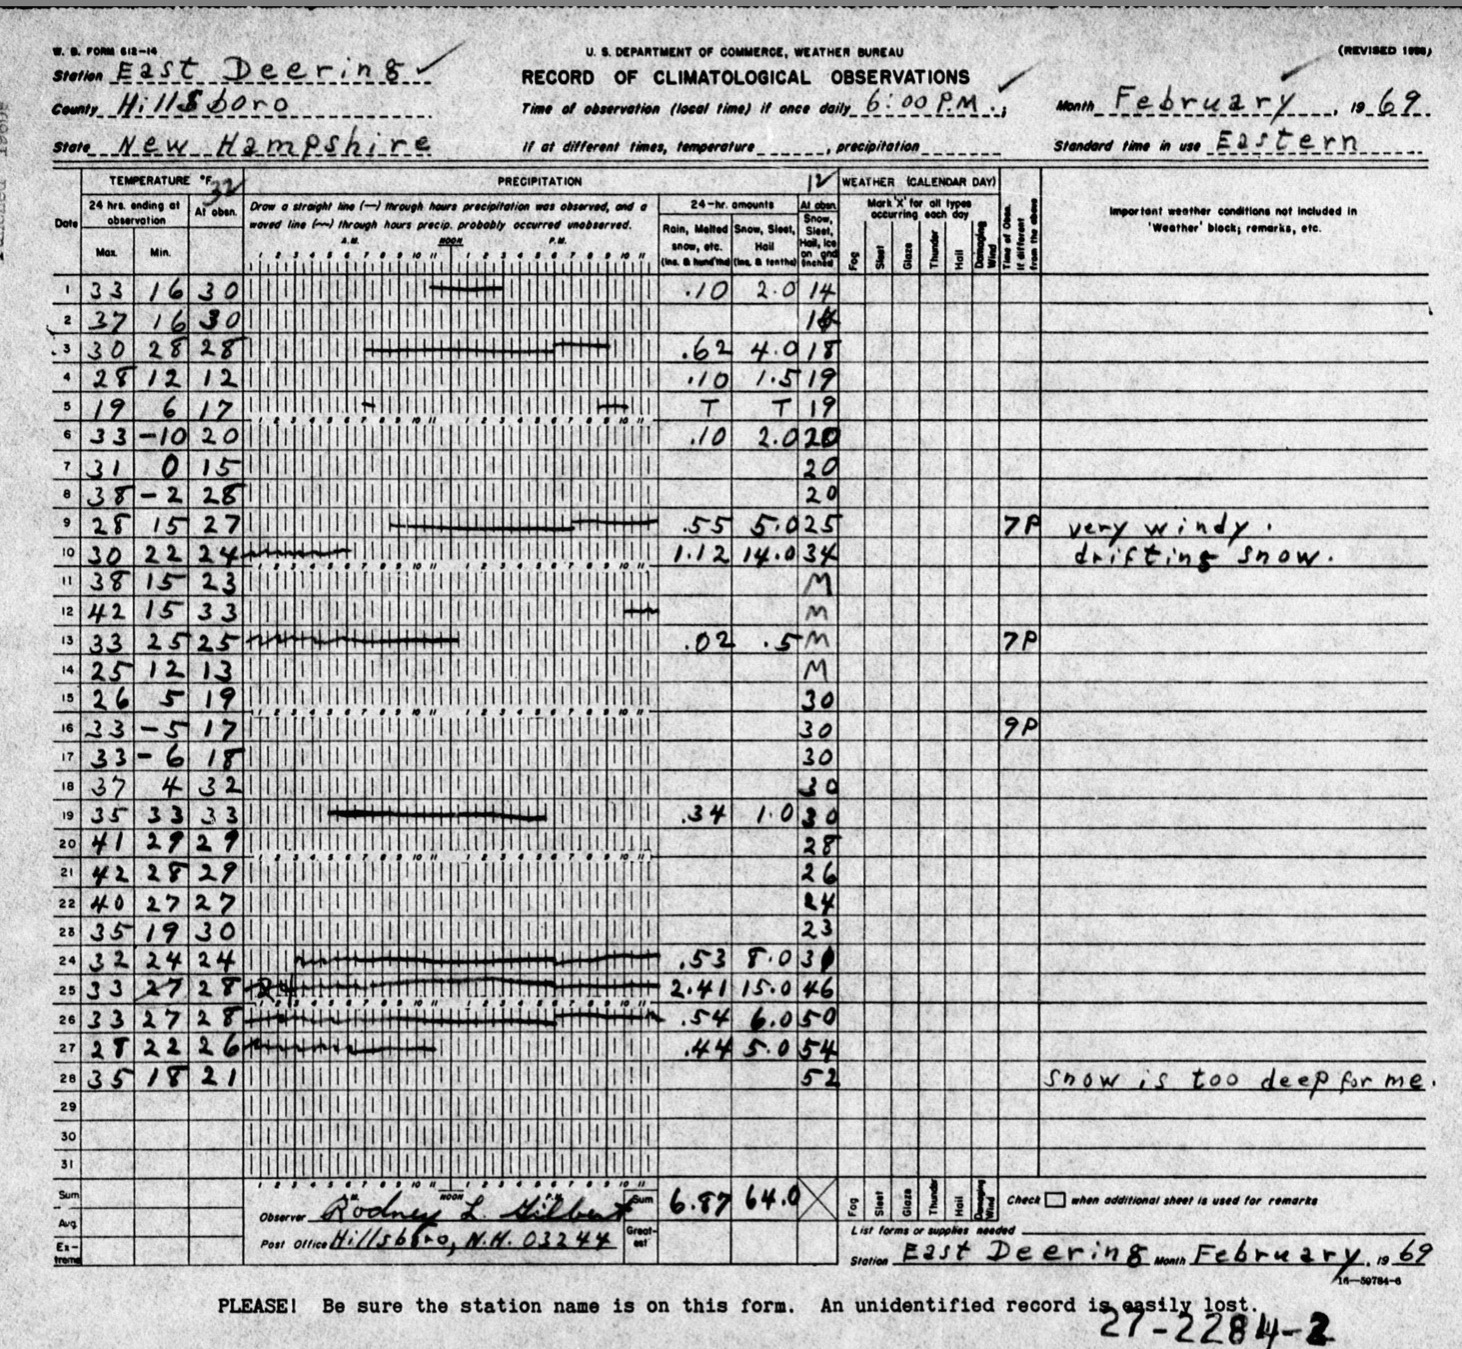 W. B. FORM 612-14
U. S. DEPARTMENT OF COMMERCE, WEATHER BUREAU
Station East Deering ✓
RECORD OF CLIMATOLOGICAL OBSERVATIONS
County Hillsboro
Time of observation (local time) if once daily 6:00 P.M.
Month February, 1969
State New Hampshire
If at different times, temperature , precipitation
Standard time in use Eastern
TEMPERATURE °F 32
PRECIPITATION
12
WEATHER (CALENDAR DAY)
Date
24 hrs. ending at observation
At obsn.
Max. Min.
Draw a straight line (—) through hours precipitation was observed, and a
waved line (~) through hours precip. probably occurred unobserved.
A.M. NOON P.M.
1 2 3 4 5 6 7 8 9 10 11 1 2 3 4 5 6 7 8 9 10 11
24-hr. amounts
At obsn.
Rain, Melted snow, etc. (Ins. & hundths)
Snow, Sleet, Hail (Ins. & tenths)
Snow, Sleet, Hail, Ice on gnd (inches)
Mark 'X' for all types occurring each day
Fog Sleet Glaze Thunder Hail Damaging Wind
Time of Obsn. if different from the above
Important weather conditions not included in 'Weather' block; remarks, etc.
1 33 16 30 .10 2.0 14
2 37 16 30
3 30 28 28 .62 4.0 18
4 28 12 12 .10 1.5 19
5 19 6 17 T T 19
6 33 -10 20 .10 2.0 20
7 31 0 15 20
8 38 -2 28 20
9 28 15 27 .55 5.0 25 7P very windy.
10 30 22 24 1.12 14.0 34 drifting snow.
11 38 15 23 M
12 42 15 33 M
13 33 25 25 .02 .5 M 7P
14 25 12 13 M
15 26 5 19 30
16 33 -5 17 30 9P
17 33 -6 18 30
18 37 4 32 30
19 35 33 33 .34 1.0 30
20 41 29 29 28
21 42 28 29 26
22 40 27 27 24
23 35 19 30 23
24 32 24 24 .53 8.0 31
25 33 27 28 2.41 15.0 46
26 33 27 28 .54 6.0 50
27 28 22 26 .44 5.0 54
28 35 18 21 52 snow is too deep for me.
29
30
31
Sum 6.87 64.0
Avg.
Extreme
1 2 3 4 5 6 7 8 9 10 11 NOON 1 2 3 4 5 6 7 8 9 10 11
Observer Rodney L. Gilbert
Sum
Post Office Hillsboro, N.H. 03244
Greatest
Fog Sleet Glaze Thunder Hail Damaging Wind
Check when additional sheet is used for remarks
List forms or supplies needed
Station East Deering Month February, 1969
16—59784-6
PLEASE! Be sure the station name is on this form. An unidentified record is easily lost.
27-2284-2
(REVISED 19